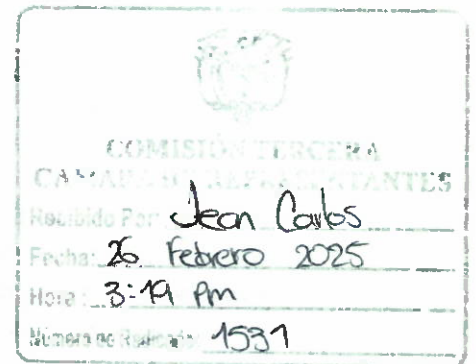 COMISIÓN TERCERA
CAMARA DE REPRESENTANTES
Recibido Por: Jean Carlos
Fecha: 26 Febrero 2025
Hora: 3:19 pm
Número de Radicado: 1531